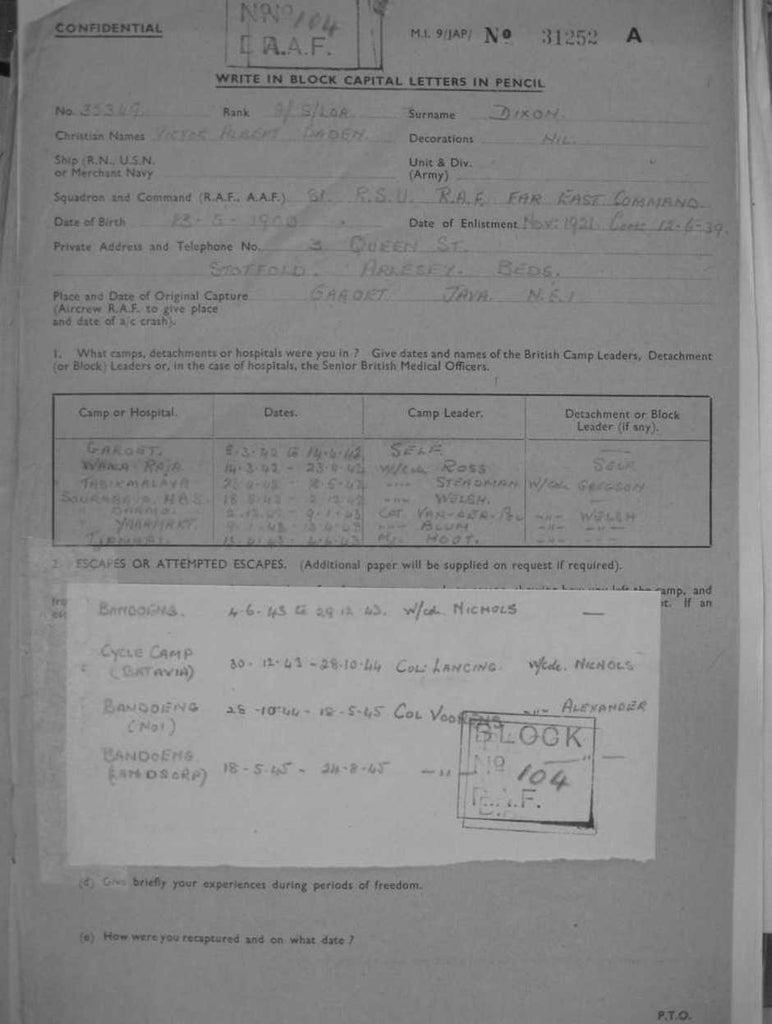 CONFIDENTIAL
Nº 104
R.A.F.
M.I. 9/JAP/ Nº 31252 A
WRITE IN BLOCK CAPITAL LETTERS IN PENCIL
No. 35349 Rank S/LDR Surname DIXON.
Christian Names VICTOR ALBERT BADEN Decorations NIL.
Ship (R.N., U.S.N. or Merchant Navy Unit & Div. (Army)
Squadron and Command (R.A.F., A.A.F.) R.S.U. R.A.F. FAR EAST COMMAND.
Date of Birth 13-5-1900 Date of Enlistment Nov: 1921 12-6-39.
Private Address and Telephone No. 3 QUEEN ST.
STOTFOLD. ARLESEY. BEDS.
Place and Date of Original Capture GAROET. JAVA. N.E.I.
(Aircrew R.A.F. to give place
and date of a/c crash).
1. What camps, detachments or hospitals were you in ? Give dates and names of the British Camp Leaders, Detachment
(or Block) Leaders or, in the case of hospitals, the Senior British Medical Officers.
Camp or Hospital. Dates. Camp Leader. Detachment or Block Leader (if any).
GAROET. 8-3-42 to SELF —
WANA RAJA 14-3-42 - W/Cdr ROSS SELF
TASIKMALAYA STEADMAN W/Cdr. GREGSON
SOURABAYA. WELSH. —
2-12-42 - 9-1-43 WELSH
9-1-43 BLUM
2. ESCAPES OR ATTEMPTED ESCAPES. (Additional paper will be supplied on request if required).
camp, and
If an
BANDOENG. 4-6-43 to 29 12 43. W/Cdr. NICHOLS —
CYCLE CAMP (BATAVIA) 30-12-43 - 28-10-44 COL. LANCING. W/Cdr. NICHOLS
BANDOENG (No1) 28-10-44 - 18-5-45 COL ALEXANDER
BANDOENG 18-5-45 - 24-8-45 —"— —
BLOCK
Nº 104
R.A.F.
(d) Give briefly your experiences during periods of freedom.
(e) How were you recaptured and on what date ?
P.T.O.